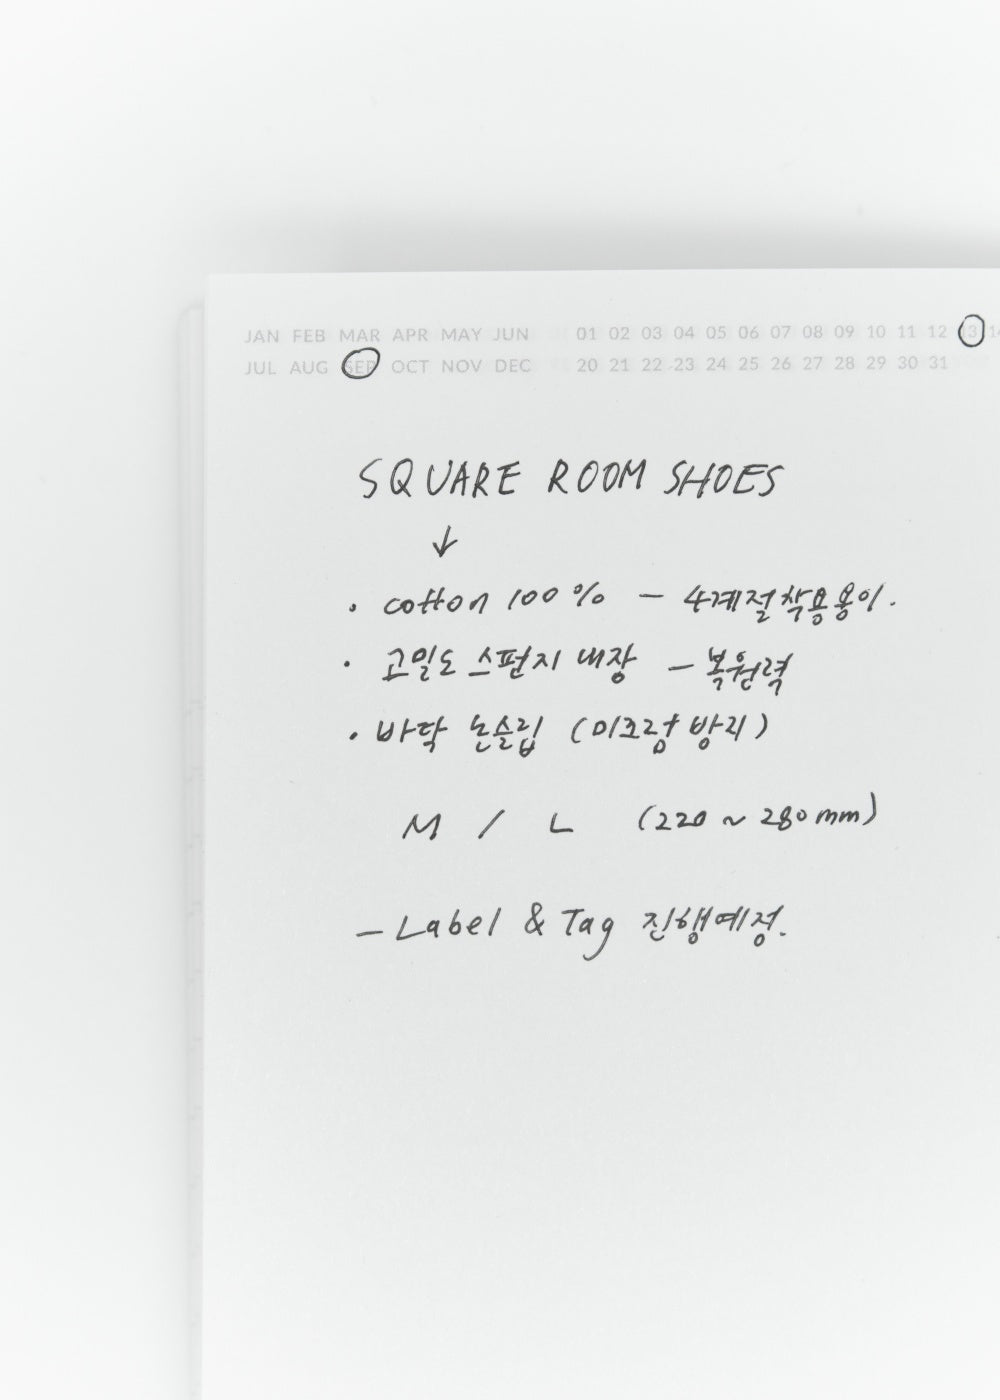 JAN FEB MAR APR MAY JUN 01 02 03 04 05 06 07 08 09 10 11 12 13 14
JUL AUG SEP OCT NOV DEC 20 21 22 23 24 25 26 27 28 29 30 31
SQUARE ROOM SHOES
↓
· cotton 100% – 4계절착용용이.
· 고밀도 스펀지 내장 – 복원력
· 바닥 논슬립 (미끄럼 방지)
M / L (220 ~ 280mm)
– Label & Tag 진행예정.